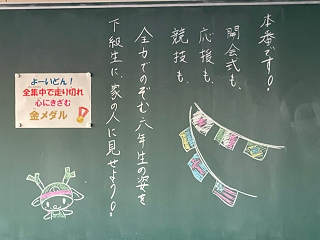 本番です!!
開会式も、
応援も、
競技も、
全力でのぞむ六年生の姿を
下級生に、家の人に見せよう!!
よーいどん!
全集中で走り切れ
心にきざむ
金メダル!